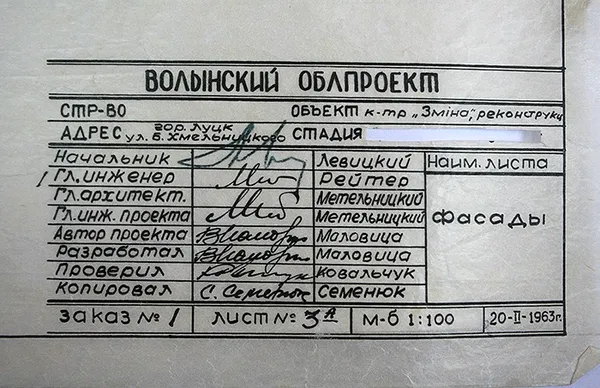 ВОЛЫНСКИЙ ОБЛПРОЕКТ
СТР-ВО ОБЪЕКТ к-тр „Зміна", реконструкц
АДРЕС гор. Луцк ул. Б. Хмельницкого СТАДИЯ
Начальник Левицкий Наим. листа
Гл. инженер Рейтер
Гл. архитект. Метельницкий
Гл. инж. проекта Метельницкий фасады
Автор проекта Маловица
Разработал Маловица
Проверил Ковальчук
Копировал С. Семенюк Семенюк
заказ № 1 лист № 3А М-б 1:100 20-II-1963г.